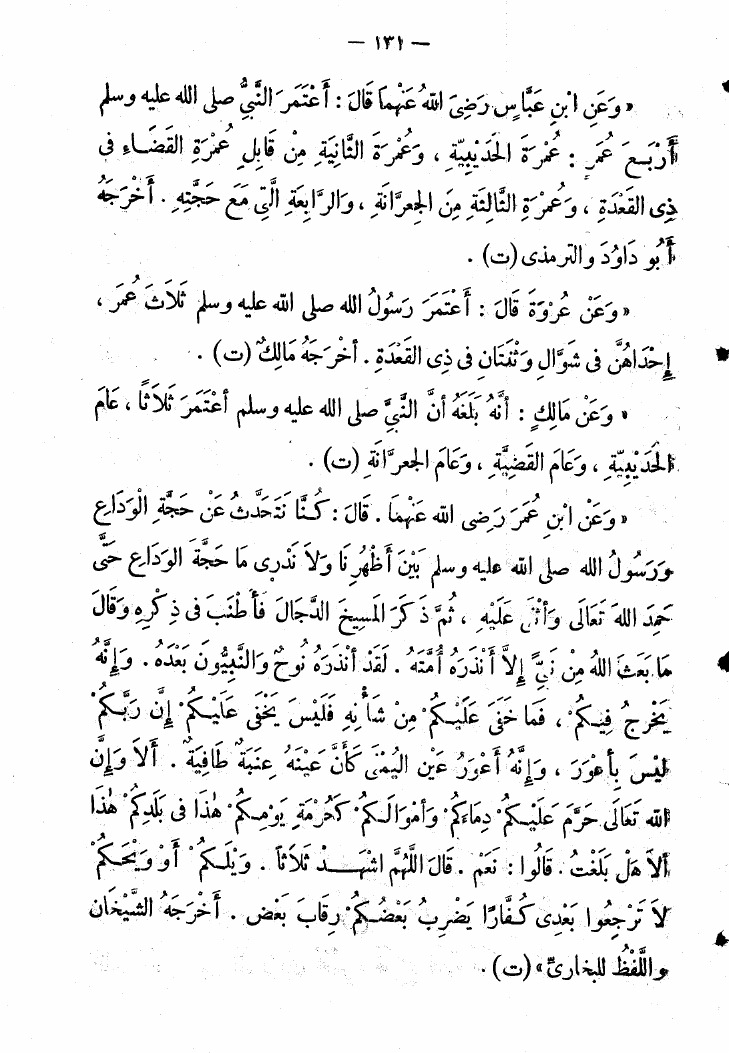 — ١٣١ —
« وَعَنِ ابْنِ عَبَّاسٍ رَضِيَ اللهُ عَنْهُمَا قَالَ : أَعْتَمَرَ النَّبِيُّ صلى الله عليه وسلم
أَرْبَعَ عُمَرٍ : عُمْرَةَ الْحَدَيْبِيَّةِ ، وَعُمْرَةَ الثَّانِيَةِ مِنْ قَابِلٍ عُمْرَةِ القَضَاءِ فى
ذِى القَعْدَةِ ، وَعُمرَةِ الثَّالِثَةِ مِنَ الجعرَّانَةِ ، وَالرَّابِعَةِ الَّتِى مَعَ حَجَّتِهِ . أَخْرَجَهُ
أَبُو دَاوُدَ والترمذى (ت) .
« وَعَنْ عُرْوَةَ قَالَ : أَعْتَمَرَ رَسُولُ الله صلى الله عليه وسلم ثَلَاثَ عُمَرٍ ،
إِحْدَاهُنَّ فى شَوَّالٍ وَثِنْتَانِ فى ذِى القَعْدَةِ . أخْرَجَهُ مَالِكٌ (ت) .
« وَعَنْ مَالِكٍ : أَنَّهُ بَلَغَهُ أنَّ النَّبِيَّ صلى الله عليه وسلم أعْتَمَرَ ثَلَاثًا ، عَامَ
الحَدَيْبِيَّةِ ، وَعَامَ القَضِيَّةِ ، وَعَامَ الجعرَّانَةِ (ت) .
« وَعَنْ ابْنِ عُمَرَ رَضِى الله عَنْهُمَا . قَالَ : كُنَّا نَتَحَدَّثُ عَنْ حَجَّةِ الْوَدَاعِ
وَرَسُولُ الله صلى الله عليه وسلم بَيْنَ أَظْهُرِنَا وَلَا نَدْرِى مَا حَجَّةُ الوَدَاعِ حَتَّى
حَمِدَ اللهَ تَعَالَى وَأَثْنَى عَلَيْهِ ، ثُمَّ ذَكَرَ المَسِيخَ الدَّجَالَ فَأَطْنَبَ فى ذِكْرِهِ وَقَالَ
مَا بَعَثَ اللهُ مِنْ نَبِيٍّ إِلاَّ أَنْذَرَهُ أُمَّتَهُ . لَقَدْ أَنْذَرَهُ نُوحٌ وَالنَّبِيُّونَ بَعْدَهُ . وَإِنَّهُ
يَخْرِجُ فِيكُمْ ، فَمَا خَفَىَ عَلَيْكُمْ مِنْ شَأْنِهِ فَلَيْسَ يَخْفَى عَلَيْكُمْ إِنَّ رَبَّكُمْ
لَيْسَ بِأَعوَرَ ، وَإِنَّهُ أَعْوَرُ عَيْنِ اليُمْنَى كَأَنَّ عَيْنَهُ عِنَبَةٌ طَافِيَةٌ . أَلاَ وَإِنَّ
الله تَعَالَى حَرَّمَ عَلَيْكُمْ دِمَاءَكُمْ وَأَمْوَالَكُمْ كَحُرْمَةِ يَوْمِكُمْ هٰذَا فى بَلَدِكُمْ هٰذَا
أَلاَ هَلْ بَلَغْتُ . قَالُوا : نَعَمْ . قَالَ اللَّهُمَّ اشْهَدْ ثَلَاثًا . وَيْلَكُمْ أَوْ وَيْحَكُمْ
لاَ تَرْجِعُوا بَعْدِى كُفَّارًا يَضْرِبُ بَعْضُكُمْ رِقَابَ بَعْضٍ . أَخْرَجَهُ الشَّيْخَانِ
وَاللَّفْظُ للبخارىِّ » (ت) .